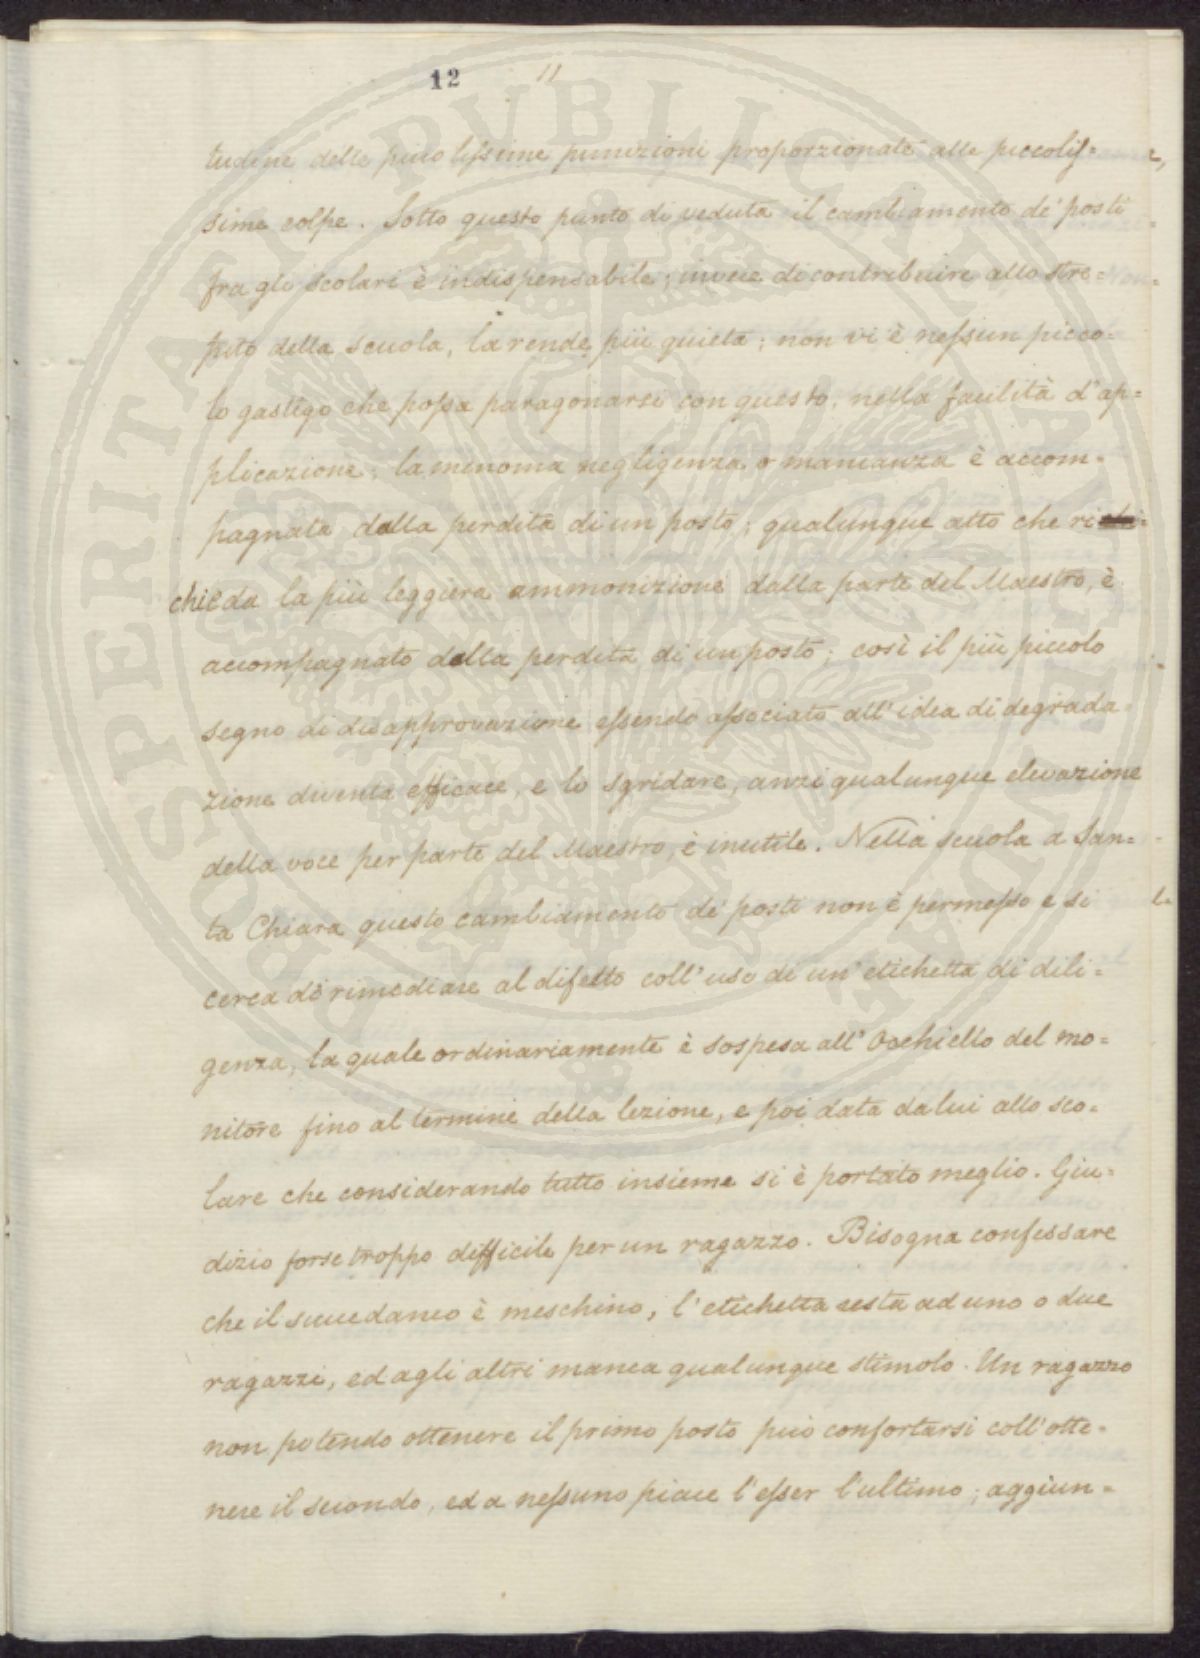 12 11
tudine delle piccolissime punizioni proporzionate alle piccolis=
sime colpe. Sotto questo punto di veduta il cambiamento de' posti
fra gli scolari è indispensabile; invece di contribuire allo stre=
pito della scuola, la rende più quieta; non vi è nessun picco=
lo gastigo che possa paragonarsi con questo, nella facilità d'ap=
plicazione; la menoma negligenza o mancanza è accom=
pagnata dalla perdita di un posto; qualunque atto che ri
chieda la più leggiera ammonizione dalla parte del Maestro, è
accompagnato dalla perdita di un posto; così il più piccolo
segno di disapprovazione essendo associato all'idea di degrada=
zione diventa efficace, e lo sgridare, anzi qualunque elevazione
della voce per parte del Maestro, è inutile. Nella scuola a San=
ta Chiara questo cambiamento de' posti non è permesso e si
cerca di rimediare al difetto coll'uso di un'etichetta di dili=
genza, la quale ordinariamente è sospesa all'Occhiello del mo=
nitore fino al termine della lezione, e poi data da lui allo sco=
lare che considerando tutto insieme si è portato meglio. Giu=
dizio forse troppo difficile per un ragazzo. Bisogna confessare
che il succedaneo è meschino, l'etichetta resta ad uno o due
ragazzi, ed agli altri manca qualunque stimolo. Un ragazzo
non potendo ottenere il primo posto può confortarsi coll'otte=
nere il secondo, ed a nessuno piace l'esser l'ultimo; aggiun=
PROSPERITATI PUBLICAE AUGENDAE